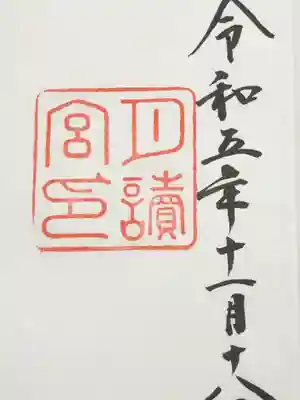 令和五年十一月十八
月讀
宮印